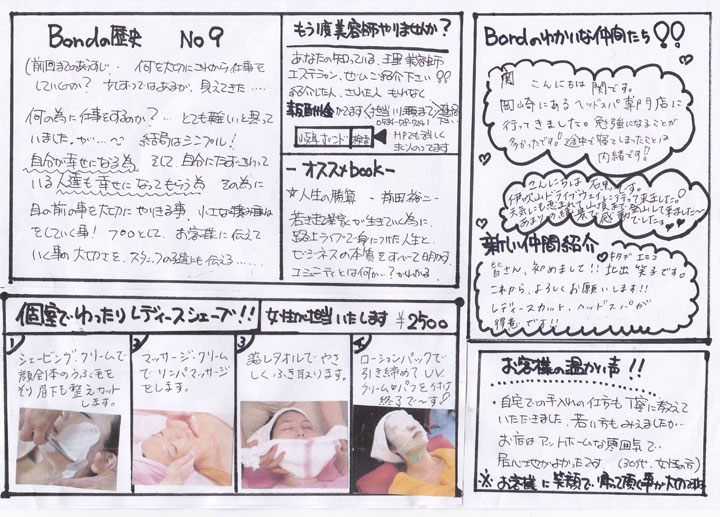 Bondの歴史 No9
(前回までのあらすじ‥ 何を大切にこれから仕事を
していくのか? 少しずつではあるが、見えてきた‥‥
何の為に仕事をするか?‥ とても難しいと思って
いました。が‥‥ 結局はシンプル!
自分が幸せになる為 そして 自分にたずさわって
いる人達も幸せになってもらう為 その為に
目の前の事を大切にやりきる事、小さな積み重ね
をしていく事! プロとして、お客様に伝えて
いく事の大切さを、スタッフの皆にも伝える‥‥‥
もう1度美容師やりませんか?
あなたの知っている、理美容師
エステシャン、ぜひご紹介下さい!!
紹介した人、された人 もれなく
報酬金がでます
HPでも詳しく
求人のってます
- オススメbook -
☆人生の勝算 - 前田裕二 -
若き起業家が生きていく為に、
路上ライブで身につけた人生と
ビジネスの本質をすべて明かす
コミュニティとは何か?がわかる
Bondのゆかいな仲間たち!!
関 こんにちは 関です。
岡崎にあるヘッドスパ専門店に
行ってきました。勉強になることが
多かったです! 途中で寝てしまったことは
内緒です!!
こんにちは 石黒です。
伊吹山ドライブウェイに行って来ました。!
天気にも恵まれて山頂まで登山して来ました〜
あまりの絶景で感動でした♡
新しい仲間紹介
キタデ エミコ
皆さん、初めまして!! 北出 笑子です。
これから、よろしくお願いします!!
レディースカット、ヘッドスパが
得意です!!
個室でゆったりレディースシェーブ!! 女性が担当いたします ¥2500
1 シェービングクリームで
顔全体のうぶ毛を
そり眉下も整えカット
します。
2 マッサージクリーム
でリンパマッサージ
をします。
3 蒸しタオルでやさ
しくふき取ります。
4 ローションパックで
引き締めてUV
クリーム
終了で〜す!
お客様の温かい声!!
・自宅での手入れの仕方も丁寧に教えて
いただきました。若い方もみえましたが‥
お店はアットホームな雰囲気で
居心地がよかったです (30代、女性の方)
※お客様に笑顔で帰って頂く事が大切です